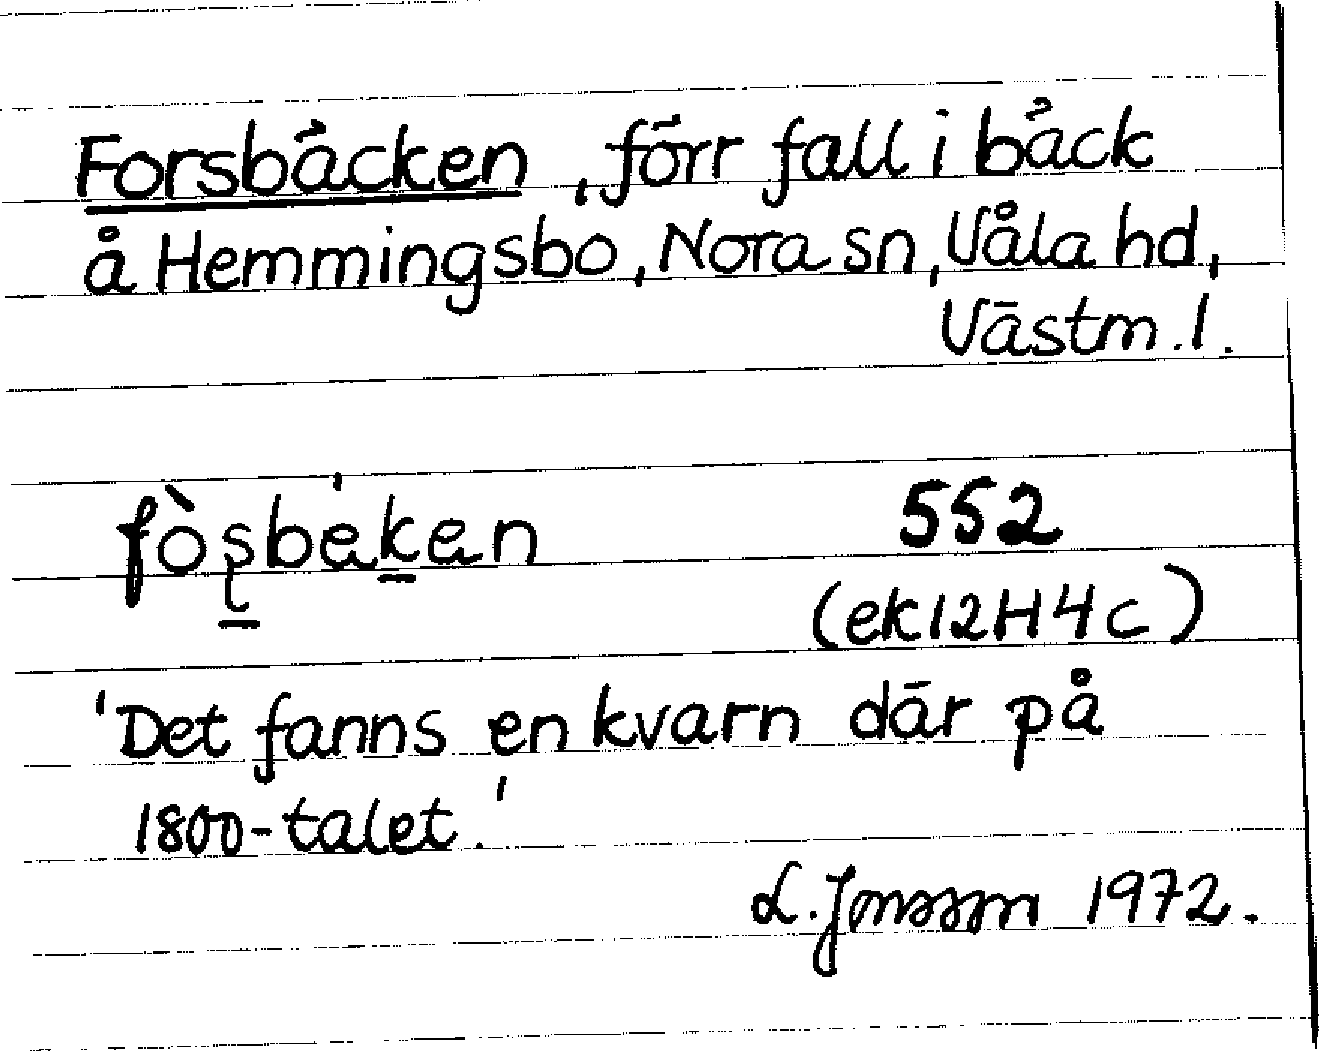 Forsbäcken, förr fall i bäck
å Hemmingsbo, Nora sn, Våla hd,
Västm. l.
fòʂbákan 552
(ek 12H4c)
'Det fanns en kvarn där på
1800-talet.'
L. Jonsson 1972.